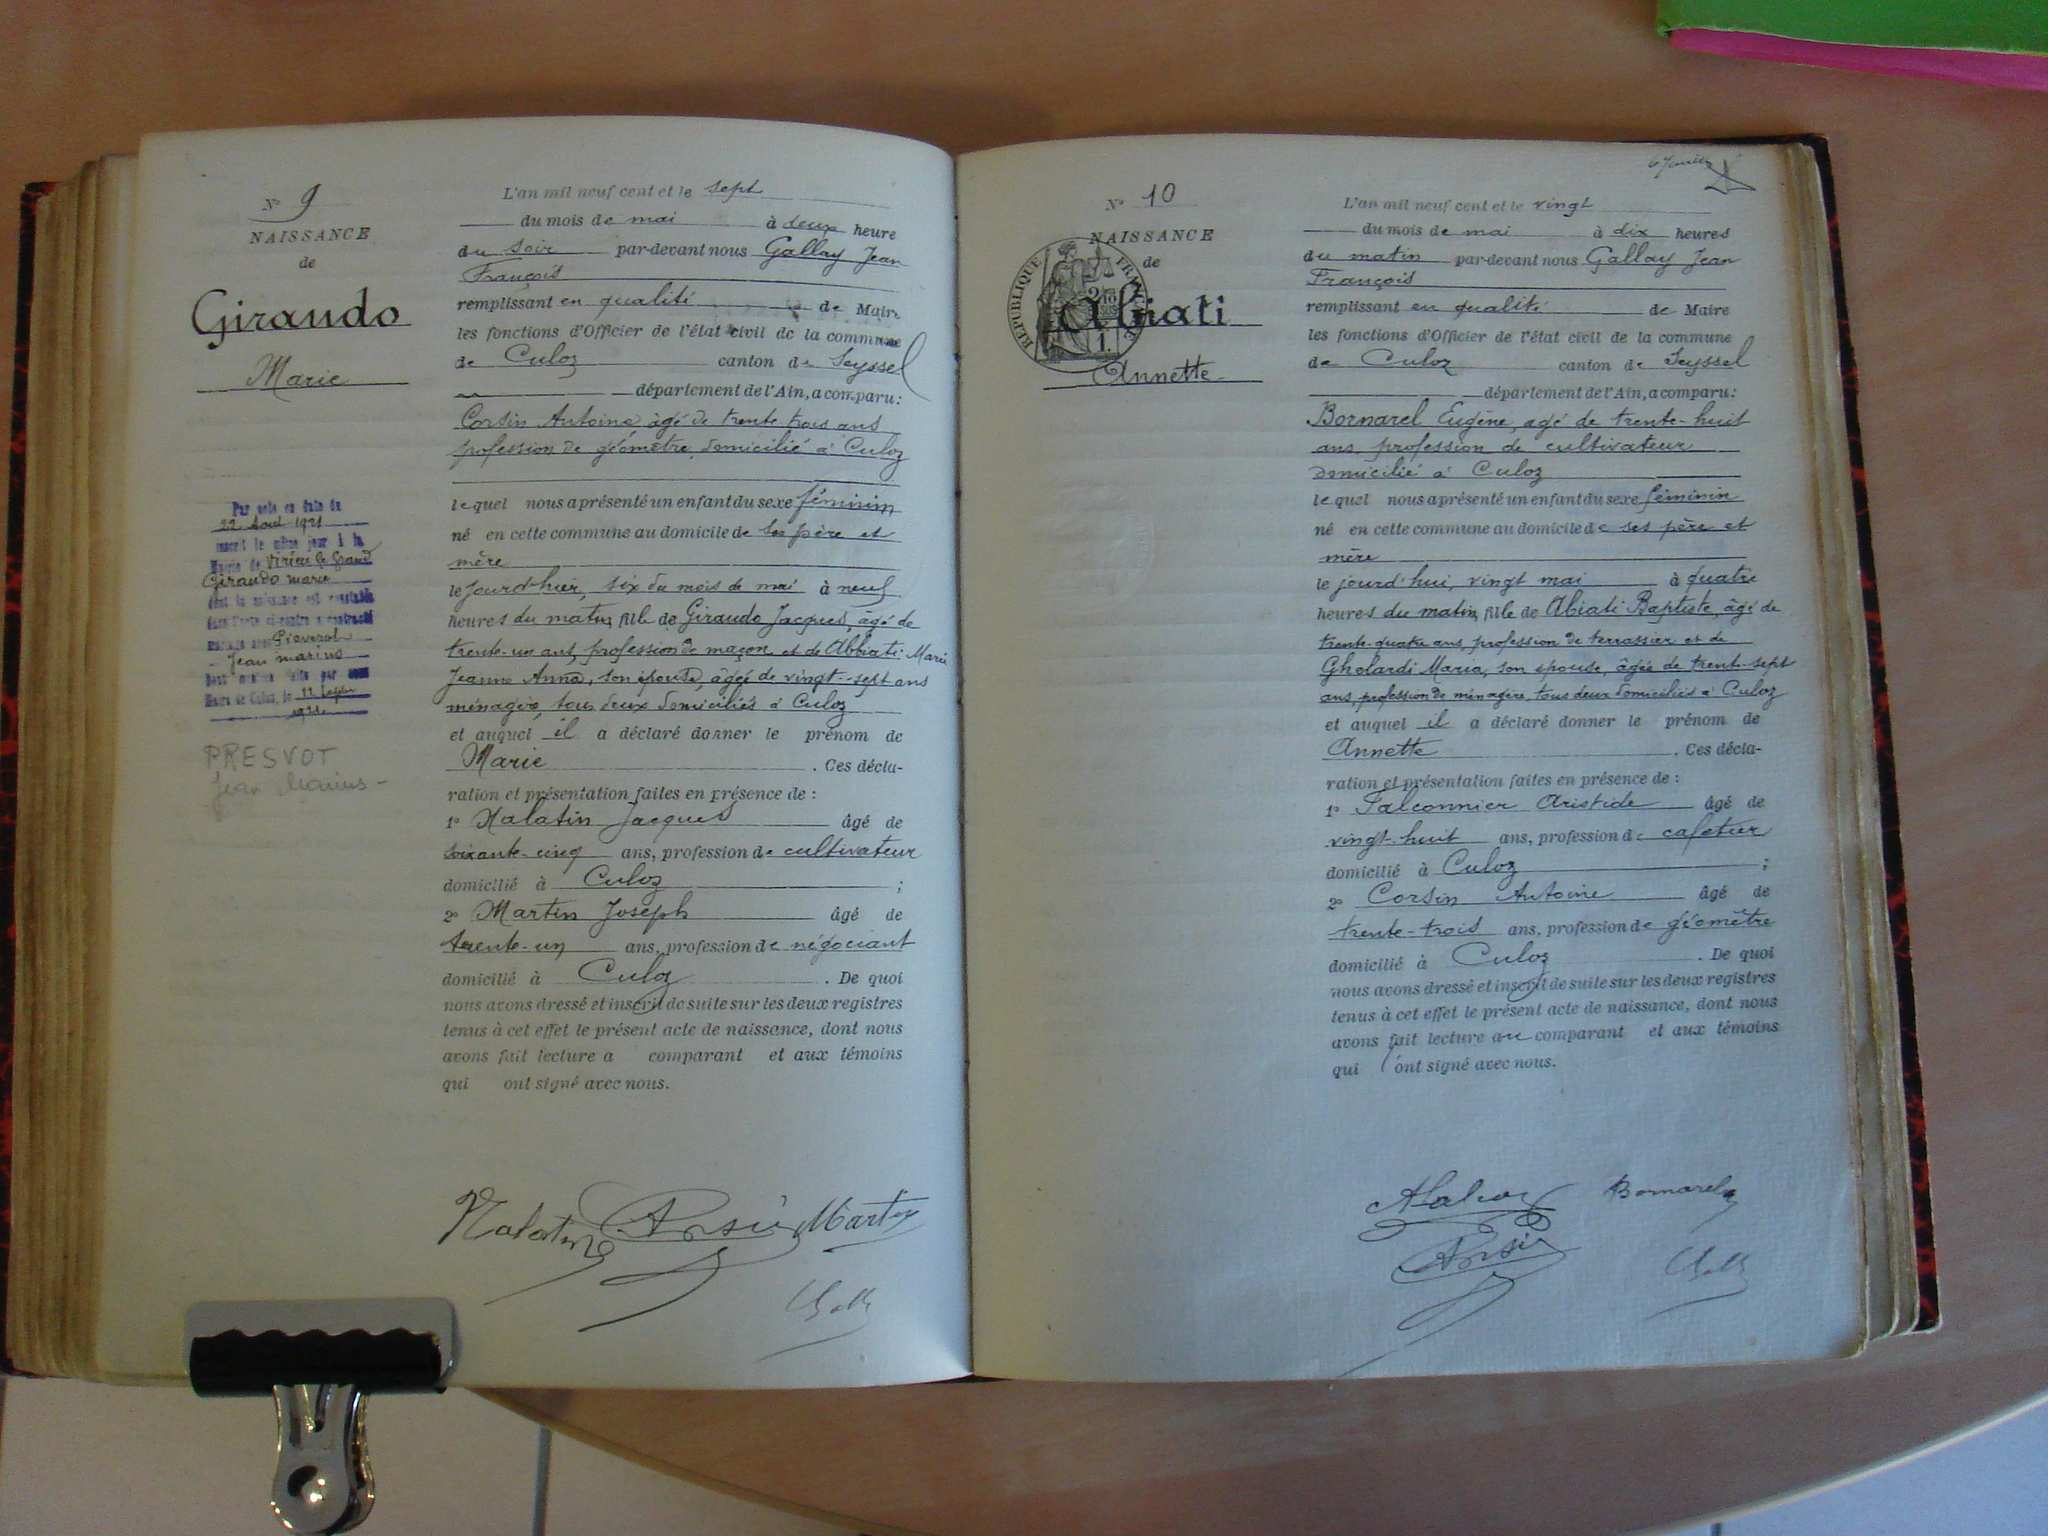 N° 9
NAISSANCE
de
Giraudo
Marie
Par acte en date du
22 Aout 1921
inscrit le même jour à la
Mairie de Virieu le Grand
Giraudo marie
dont la naissance est constatée
dans l'acte ci-contre a contracté
mariage avec
Jean marius
Dont mention faite par nous
Maire de Culoz, le 11
1921
PRESVOT
Jean Marius -
L'an mil neuf cent et le sept
du mois de mai à deux heure
du soir par-devant nous Gallay Jean
François
remplissant en qualité de Maire
les fonctions d'Officier de l'état civil de la commune
de Culoz canton de Seyssel
département de l'Ain, a comparu :
Corsin Antoine âgé de trente trois ans
profession de géomètre, domicilié à Culoz
lequel nous a présenté un enfant du sexe féminin
né en cette commune au domicile de ses père et
mère
le jourd'hier, six du mois de mai à neuf
heures du matin, fille de Giraudo Jacques, âgé de
trente-un ans, profession de maçon et de Abbiati Marie
Jeanne Anna, son épouse, âgée de vingt-sept ans
ménagère, tous deux domiciliés à Culoz
et auquel il a déclaré donner le prénom de
Marie . Ces décla-
ration et présentation faites en présence de :
1° Malatin Jacques âgé de
soixante-cinq ans, profession de cultivateur
domicilié à Culoz ;
2° Martin Joseph âgé de
trente-un ans, profession de négociant
domicilié à Culoz . De quoi
nous avons dressé et inscrit de suite sur les deux registres
tenus à cet effet le présent acte de naissance, dont nous
avons fait lecture a comparant et aux témoins
qui ont signé avec nous.
Martin
N° 10
NAISSANCE
de
RÉPUBLIQUE
Abiati
Annette
L'an mil neuf cent et le vingt
du mois de mai à dix heures
du matin par-devant nous Gallay Jean
François
remplissant en qualité de Maire
les fonctions d'Officier de l'état civil de la commune
de Culoz canton de Seyssel
département de l'Ain, a comparu :
Bornarel Eugène, agé de trente-huit
ans, profession de cultivateur
domicilié à Culoz
lequel nous a présenté un enfant du sexe féminin
né en cette commune au domicile de ses père et
mère
le jourd'hui, vingt mai à quatre
heures du matin, fille de Abiati Baptiste, âgé de
trente-quatre ans, profession de terrassier et de
Gholardi Maria, son épouse, âgée de trent-sept
ans, profession de ménagère, tous deux domiciliés à Culoz
et auquel il a déclaré donner le prénom de
Annette . Ces décla-
ration et présentation faites en présence de :
1° Falconnier Aristide âgé de
vingt-huit ans, profession de cafetier
domicilié à Culoz ;
2° Corsin Antoine âgé de
trente-trois ans, profession de géomètre
domicilié à Culoz . De quoi
nous avons dressé et inscrit de suite sur les deux registres
tenus à cet effet le présent acte de naissance, dont nous
avons fait lecture au comparant et aux témoins
qui ont signé avec nous.
Bornarel